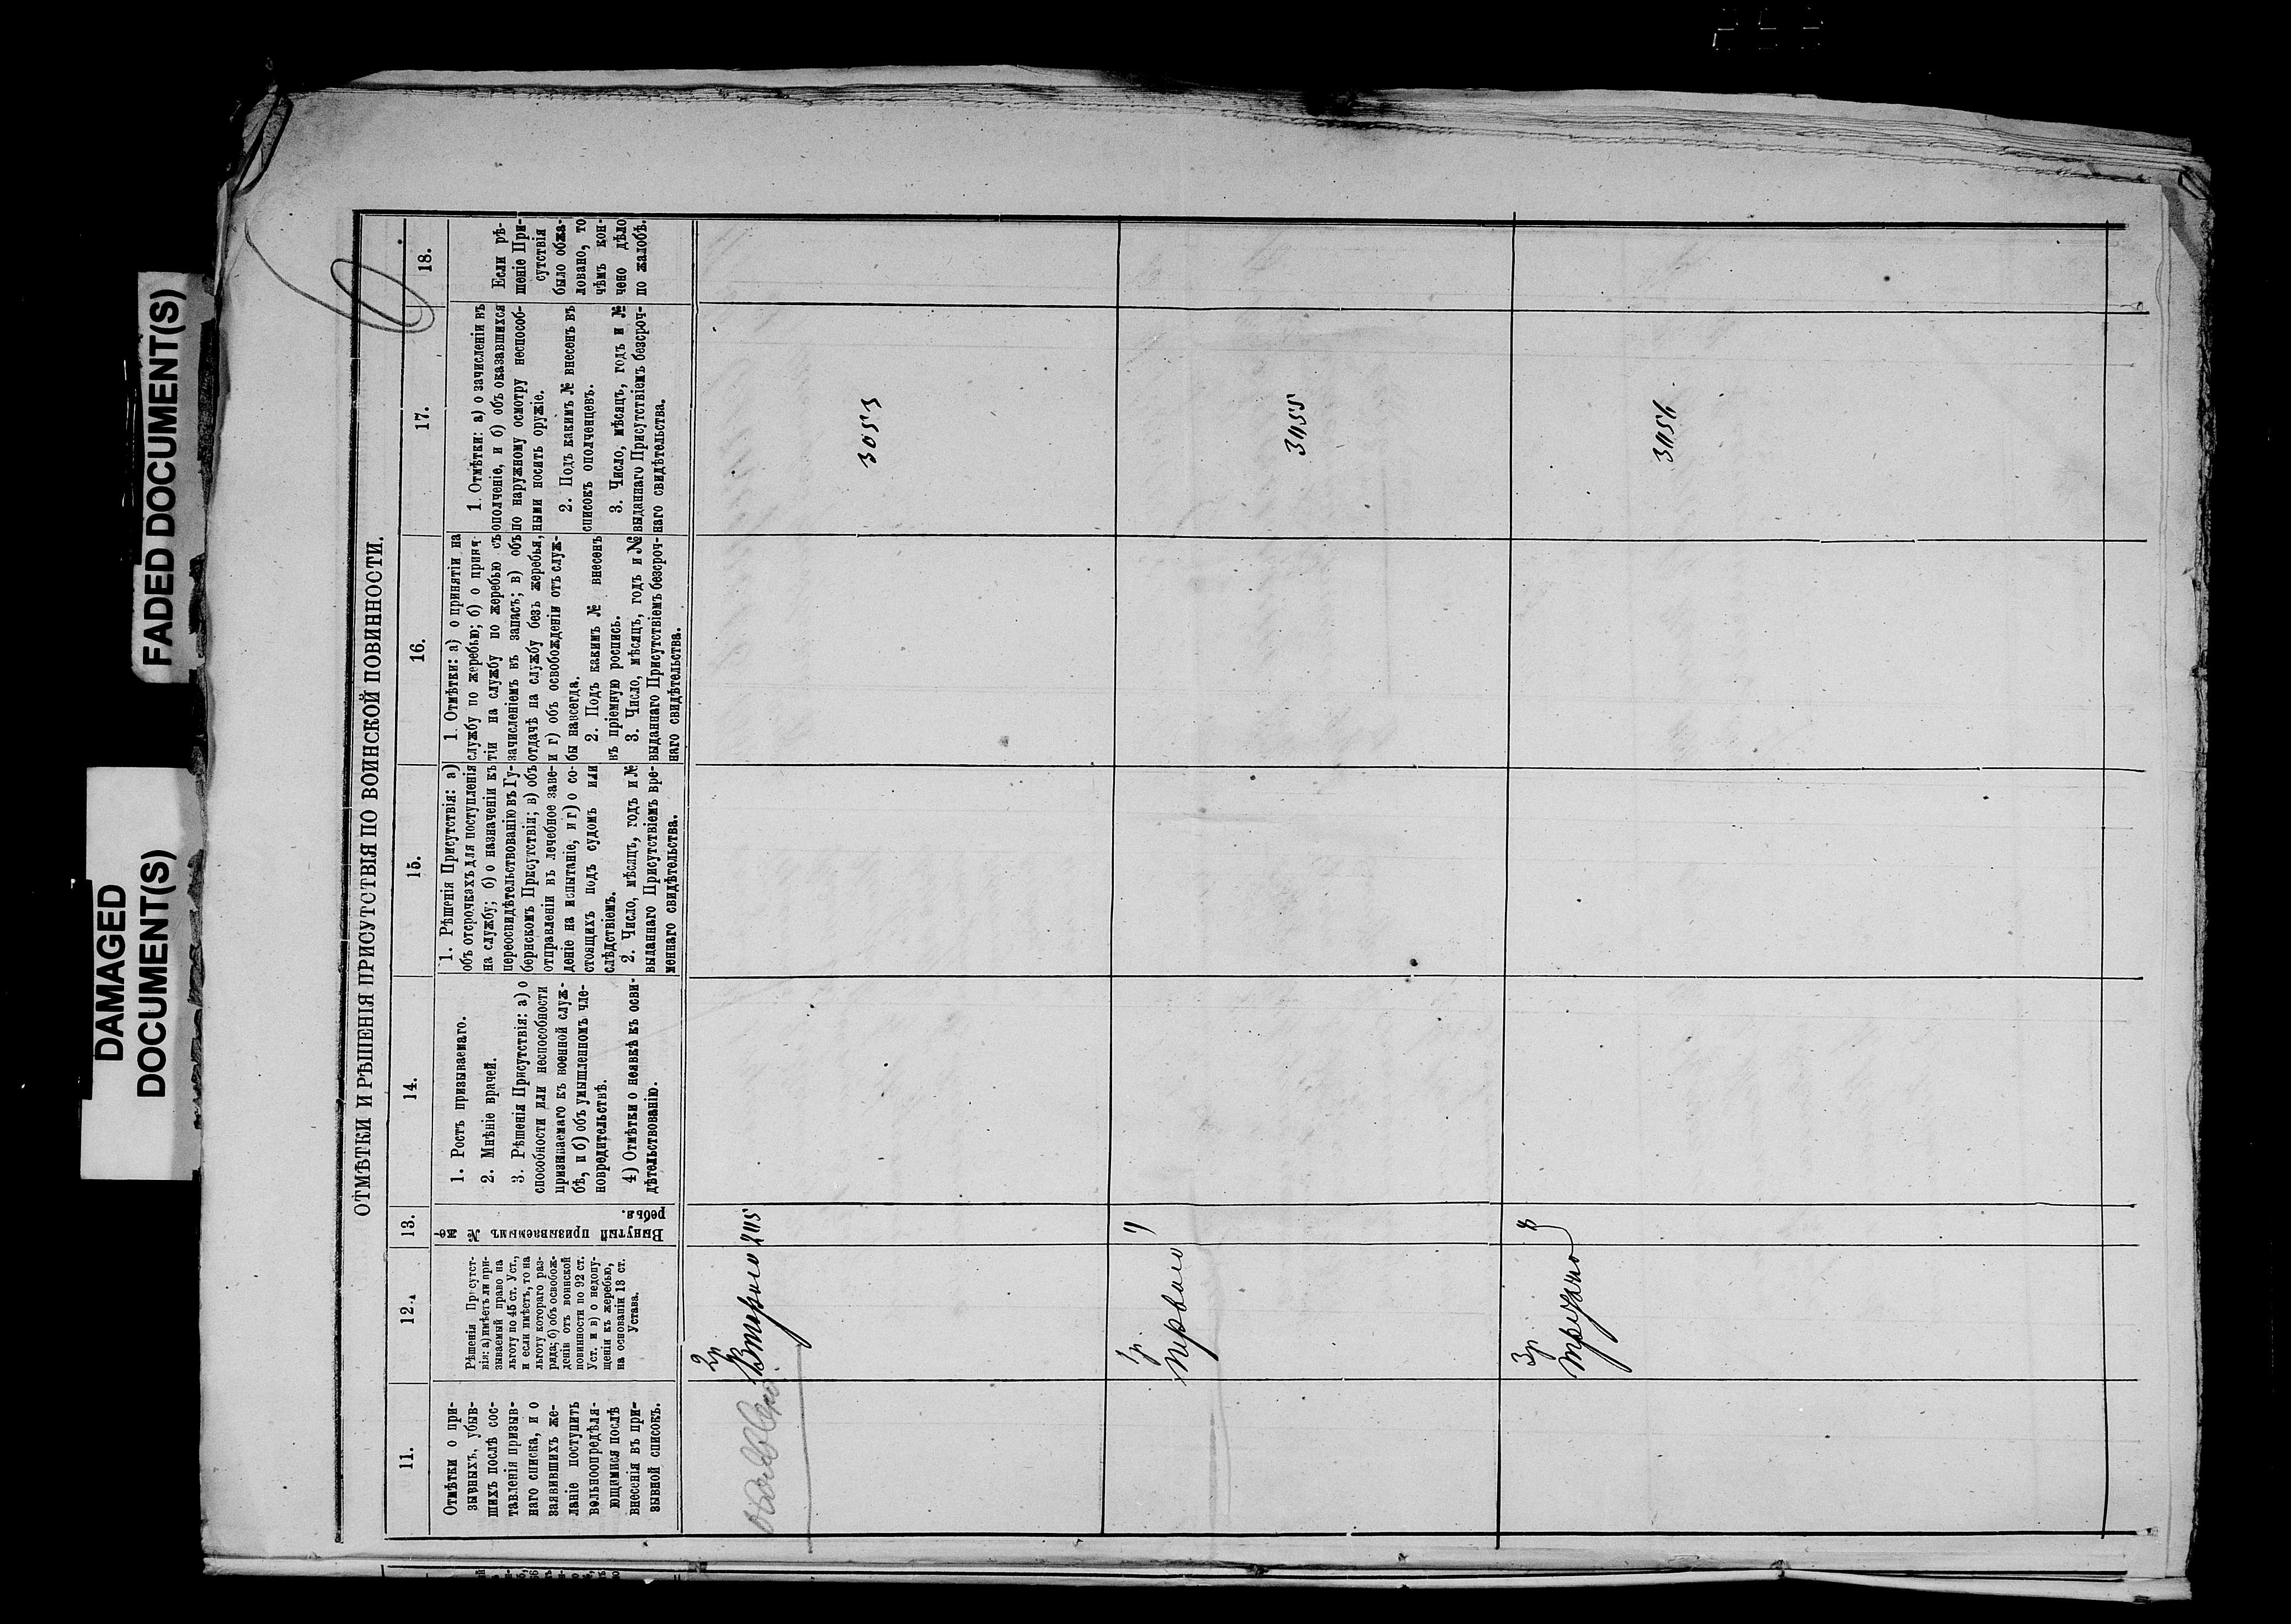 DAMAGED
DOCUMENT(S)
FADED DOCUMENT(S)
ОТМѢТКИ И РѢШЕНІЯ ПРИСУТСТВІЯ ПО ВОИНСКОЙ ПОВИННОСТИ.
11.
Отмѣтки о при-
зывныхъ, убыв-
шихъ послѣ сос-
тавленія призыв-
наго списка, и о
заявившихъ же-
ланіе поступить
вольноопредѣля-
ющимися послѣ
внесенія въ при-
зывной списокъ.
12.
Рѣшенія Присутст-
вія: а) имѣетъ ли при-
зываемый право на
льготу по 45 ст. Уст.,
и если имѣетъ, то на
льготу котораго раз-
ряда; б) объ освобож-
деніи отъ воинской
повинности по 92 ст.
Уст. и в) о недопу-
щеніи къ жеребью,
на основаніи 13 ст.
Устава.
13.
Вынутый призываемымъ № же-
ребья.
14.
1. Ростъ призываемаго.
2. Мнѣніе врачей.
3. Рѣшенія Присутствія: а) о
способности или неспособности
призываемаго къ военной служ-
бѣ, и б) объ умышленномъ чле-
новредительствѣ.
4) Отмѣтки о неявкѣ къ осви-
дѣтельствованію.
15.
1. Рѣшенія Присутствія: а)
объ отсрочкахъ для поступленія
на службу; б) о назначеніи къ
переосвидѣтельствованію въ Гу-
бернскомъ Присутствіи; в) объ
отправленіи въ лечебное заве-
деніе на испытаніе, и г) о со-
стоящихъ подъ судомъ или
слѣдствіемъ.
2. Число, мѣсяцъ, годъ и №
выданнаго Присутствіемъ вре-
меннаго свидѣтельства.
16.
1. Отмѣтки: а) о принятіи на
службу по жеребью; б) о приня-
тіи на службу по жеребью съ
зачисленіемъ въ запасъ; в) объ
отдачѣ на службу безъ жеребья,
и г) объ освобожденіи отъ служ-
бы навсегда.
2. Подъ какимъ № внесенъ
въ пріемную роспись.
3. Число, мѣсяцъ, годъ и №
выданнаго Присутствіемъ безсроч-
наго свидѣтельства.
17.
1. Отмѣтки: а) о зачисленіи въ
ополченіе, и б) объ оказавшихся
по наружному осмотру неспособ-
ными носить оружіе.
2. Подъ какимъ № внесенъ въ
списокъ ополченцевъ.
3. Число, мѣсяцъ, годъ и №
выданнаго Присутствіемъ безсроч-
наго свидѣтельства.
18.
Если рѣ-
шеніе При-
сутствія
было обжа-
ловано, то
чѣмъ кон-
чено дѣло
по жалобѣ.
2р
Втораго
3053
1р
Перваго
3055
3р
3056